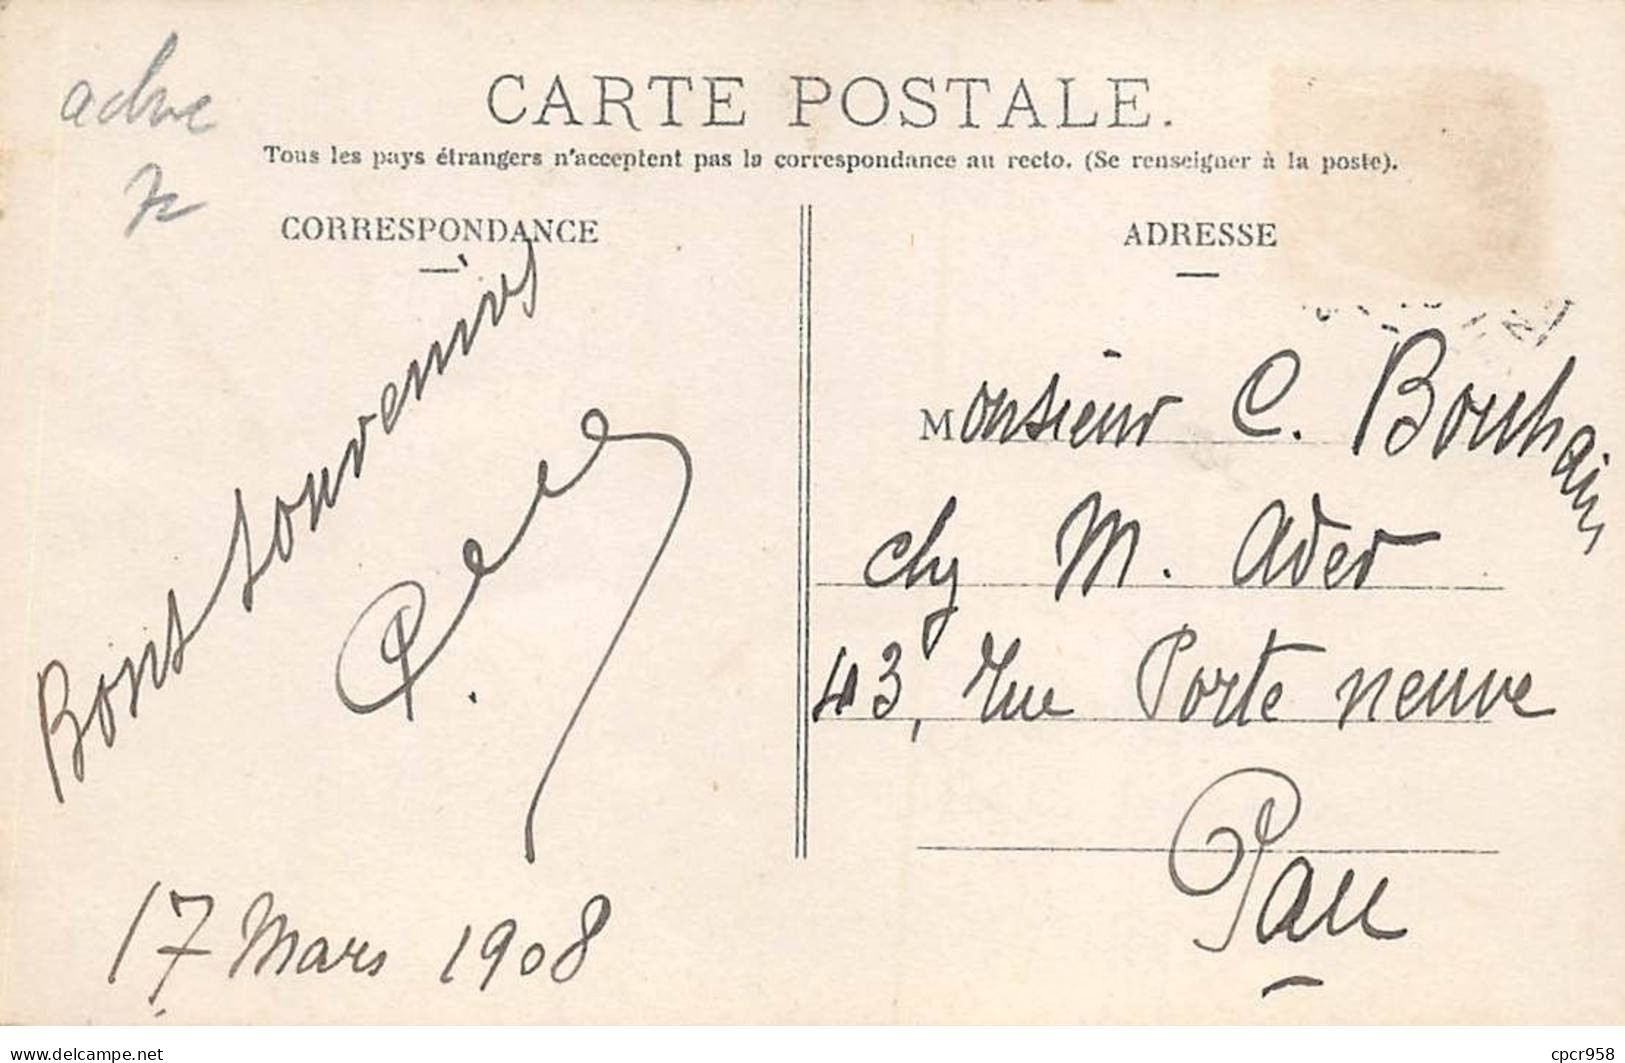 CARTE POSTALE.
Tous les pays étrangers n'acceptent pas la correspondance au recto. (Se renseigner à la poste).
CORRESPONDANCE
Bons souvenirs
17 Mars 1908
ADRESSE
Monsieur C. Bouhain
chz M. Ader
43, rue Porte neuve
Pau
www.delcampe.net
cpcr958